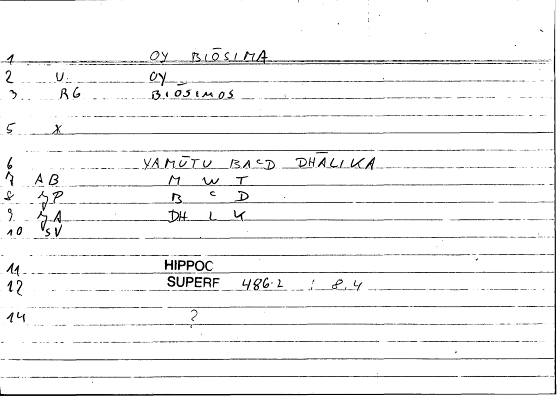 1 OY BIŌSIMA
2 U. OY
3 RG BIŌSIMOS
5 X
6 YAMŪTU BAcD DHĀLIKA
7 AB M W T
8 JP B c D
9 JA DH L K
10 SV
11 HIPPOC
12 SUPERF 486.2 : 8.4
14 ?